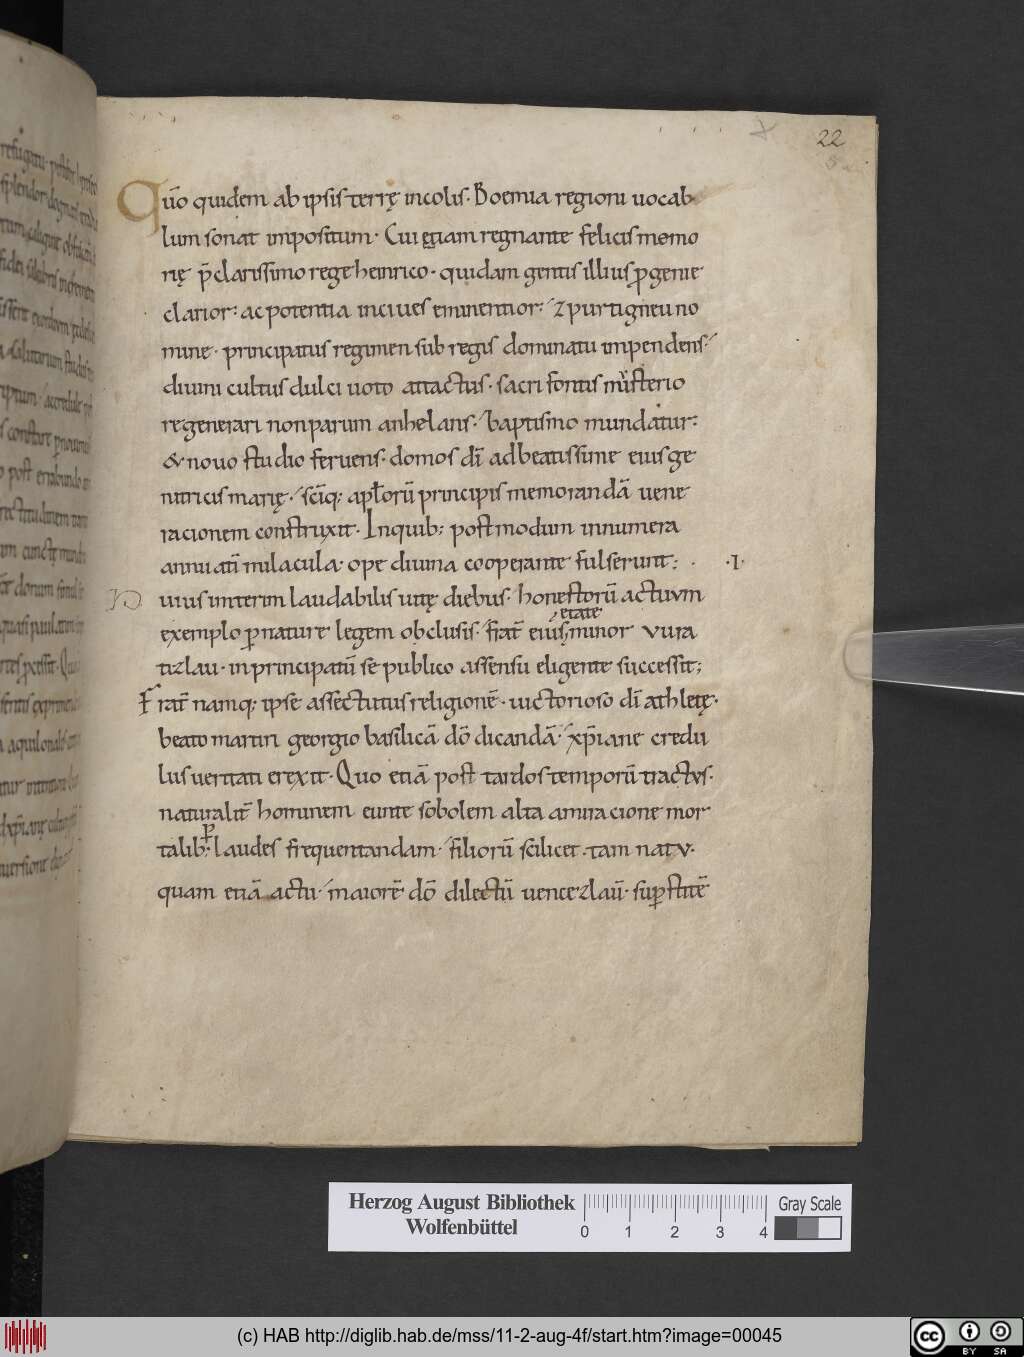 22
Quō quidem ab ipsis terrę incolis. Boemia regioni uocab
lum sonat impositum. Cui etiam regnante felicis memo
rię p̄clarissimo rege heinrico. quidam gentis illius ꝓgenie
clarior: ac potentia inciues eminentior. zpurtigneu no
mine. principatus regimen sub regis dominatu impendens.
diuini cultus dulci uoto attactus. sacri fontis misterio
regenerari non parum anhelans. baptismo mundatur:
& nouo studio feruens. domos dī ad beatissime eius ge
nitricis marię. sc̄iq; apl̄orū principis memorandā uene
racionem construxit. Inquib; postmodum innumera
annuatī miracula. ope diuina cooperante fulserunt: . ·I·
uius interim laudabilis uitę diebus. honestorū actuum
etate
exemplo ꝑ naturę legem obclusis. frat̄ eius, minor vura
tizlau. in principatū se publico assensu eligente successit;
Frat̄ namq; ipse assectutus religionē. uictorioso dī athletę.
beato martiri georgio basilicā dō dicandā. xp̄iane credu
lus ueritati erexit. Quo etiā post tardos temporū tractus.
naturalit̄ hominem eunte sobolem alta amiracione mor
talib; laudes frequentandam. filiorū scilicet. tam natu.
quam etiā actu. maiorē dō dilectū uencezlaū. suꝑstitē
Herzog August Bibliothek
Wolfenbüttel
0 1 2 3 4
Gray Scale
(c) HAB http://diglib.hab.de/mss/11-2-aug-4f/start.htm?image=00045
cc BY SA